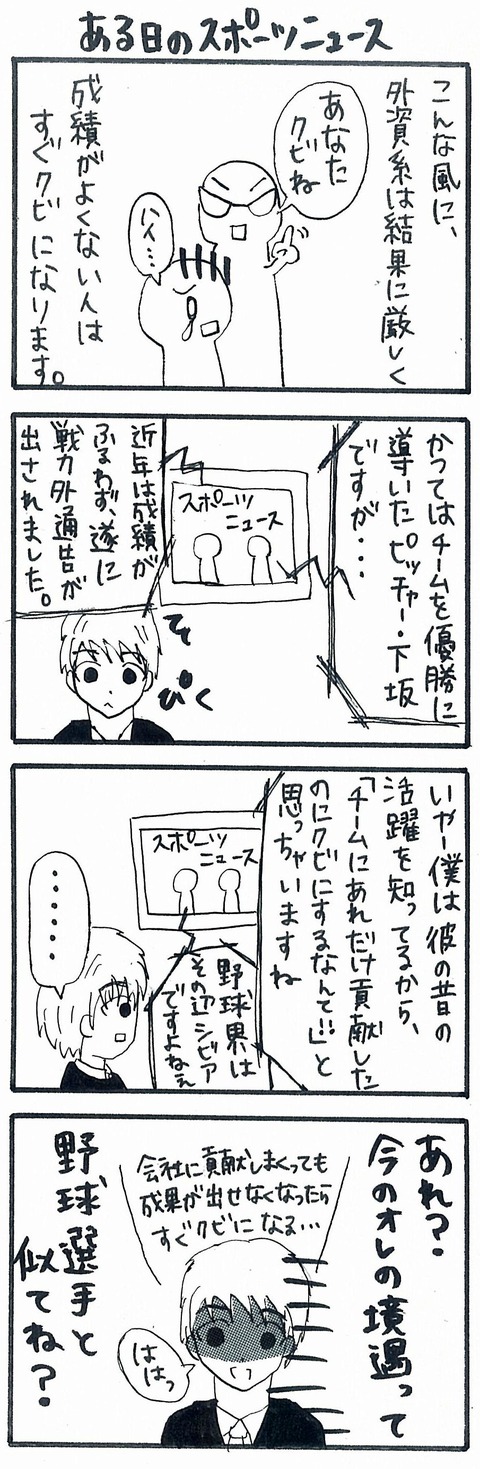 ある日のスポーツニュース
こんな風に、
外資系は結果に厳しく
あなた
クビね
ハイ…
成績がよくない人は
すぐクビになります。
かつてはチームを優勝に
導いたピッチャー・下坂
ですが・・・
スポーツ
ニュース
近年は成績が
ふるわず、遂に
戦力外通告が
出されました。
ぴく
いやー僕は彼の昔の
活躍を知ってるから、
「チームにあれだけ貢献した
のにクビにするなんて!!」と
思っちゃいますね
スポーツ
ニュース
野球界は
その辺シビア
ですよねぇ
・・・・・・
あれ?
今のオレの境遇って
会社に貢献しまくっても
成果が出せなくなったら
すぐクビになる…
ははっ
野球選手と
似てね?